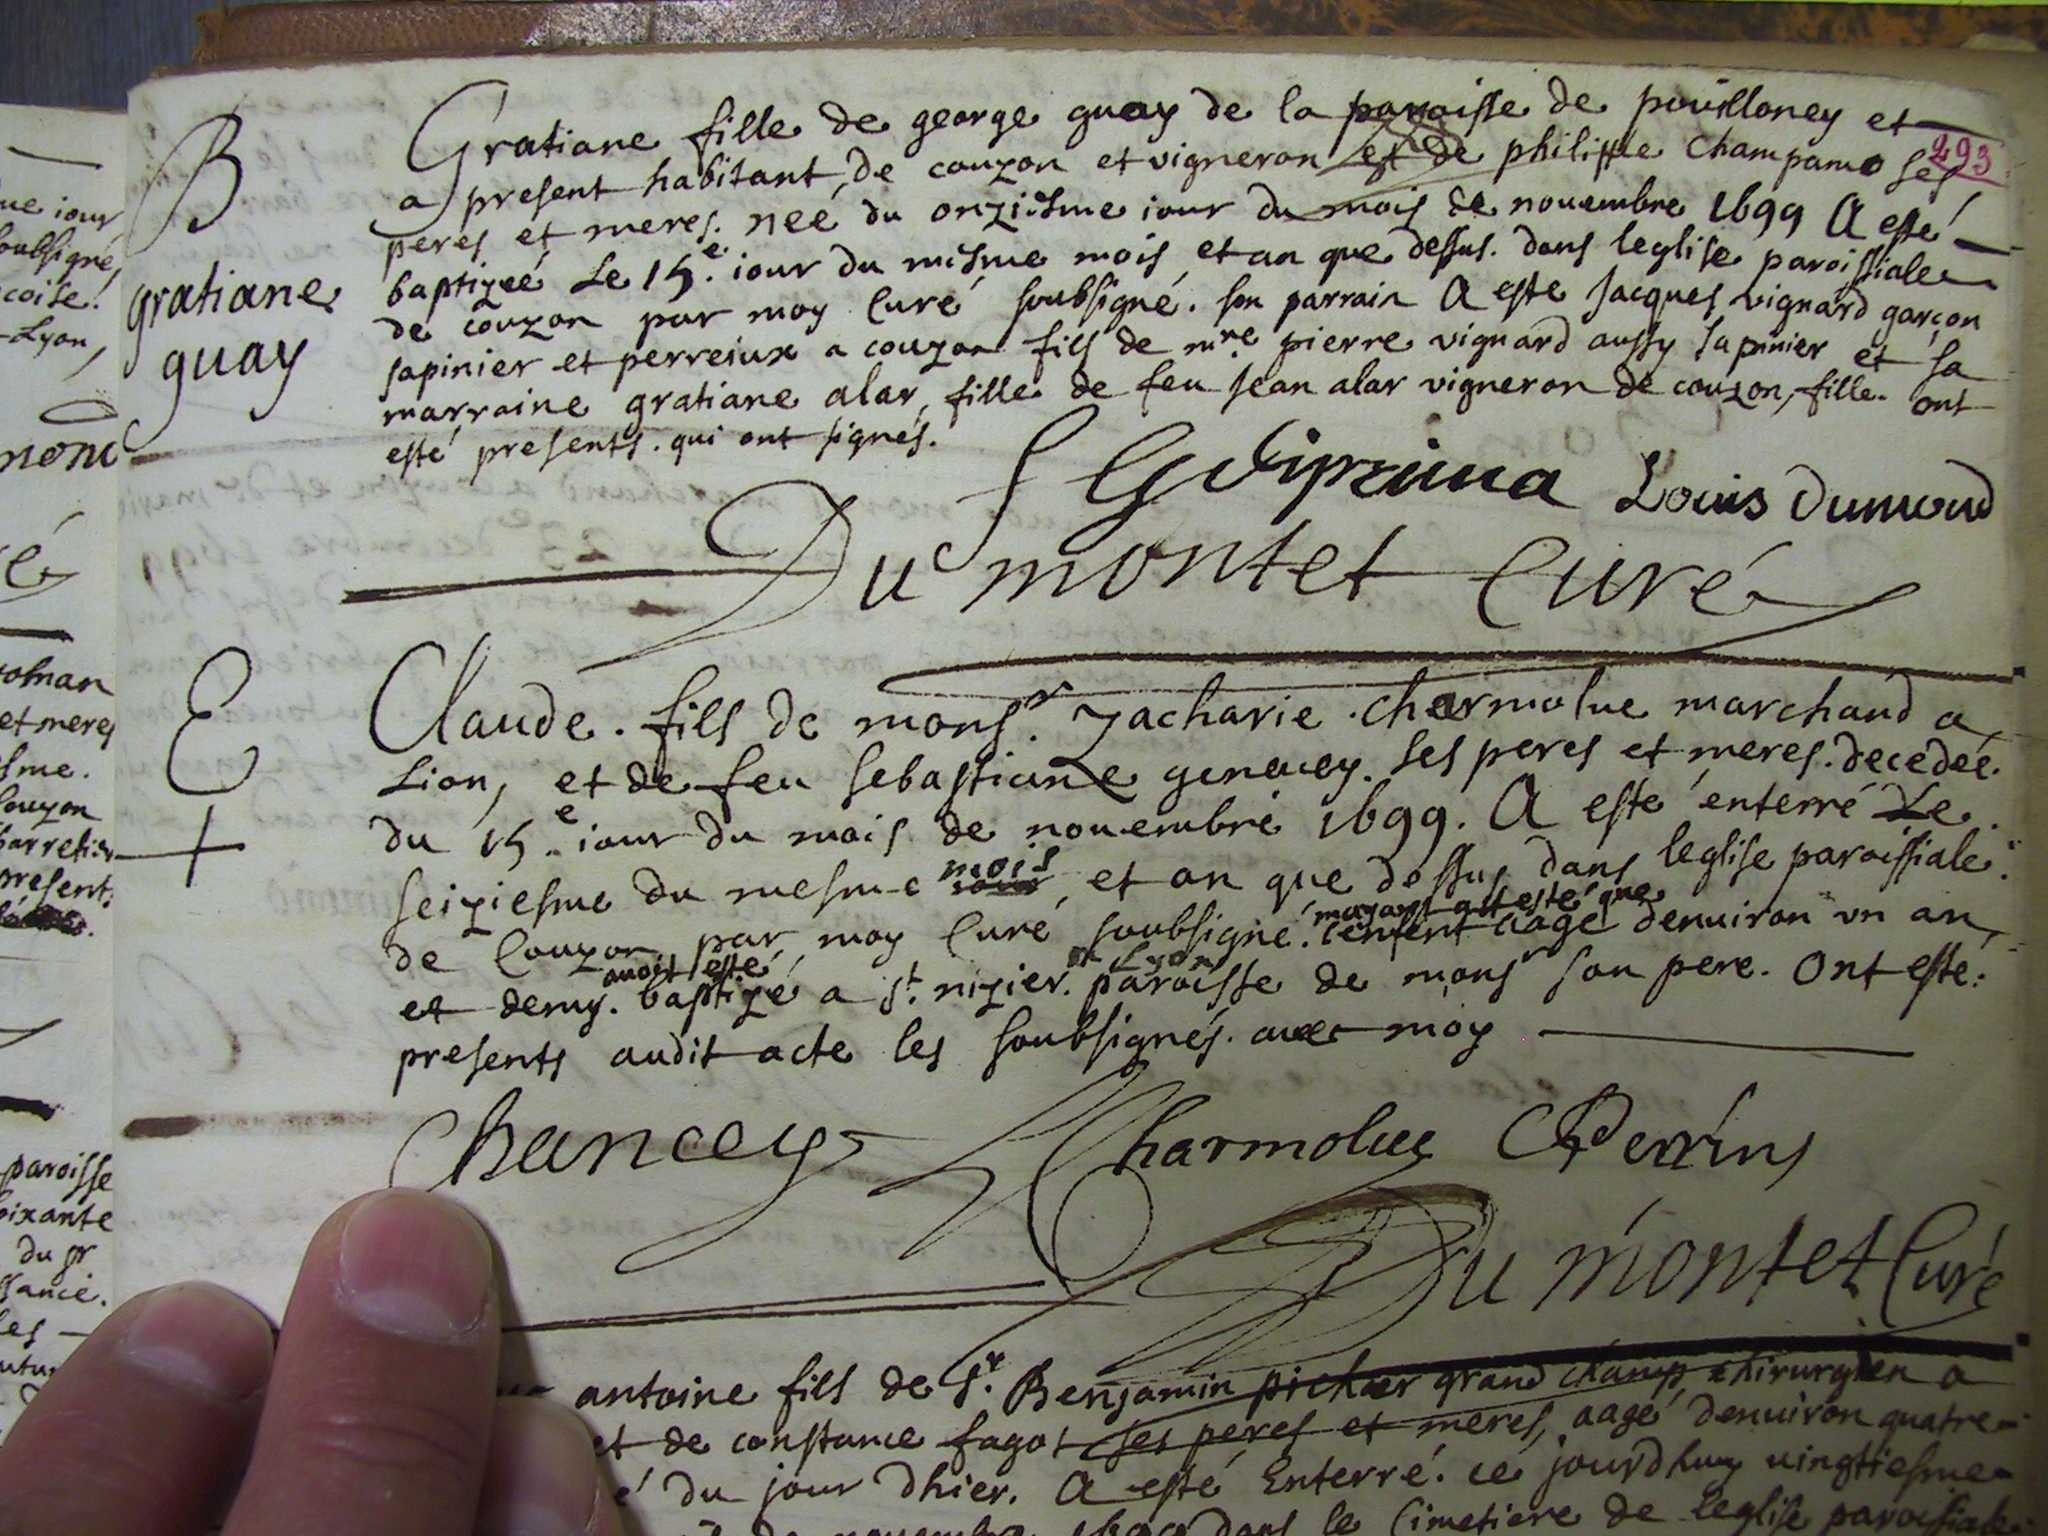 293
B
gratiane
guay
Gratiane fille de george guay de la paroisse de pouilloney et
a present habitant de couzon et vigneron et de philippe champamo ses
peres et meres. neé du onziesme iour du mois de nouembre 1699 A esté
baptizeé Le 15.e iour du mesme mois et an que dessus. dans leglise paroissiale
de couzon par moy Curé soubsigné. son parrain A este Jacques vignard garçon
sapinier et perreiux a couzon fils de mre pierre vignard aussy sapinier et sa
marraine gratiane alar, fille de feu Jean alar vigneron de couzon, fille. ont
esté presents. qui ont signés.
Louis Dumond
Du montet Curé
E
Claude. fils de monsr. Zacharie. charmolue marchand a
Lion, et de feu sebastiane geneuey. ses peres et meres. decedeé
du 15.e iour du mois de nouembre 1699. A esté enterré Le
seiziesme du mesme mois et an que dessus dans leglise paroissiale
de Couzon par moy Curé soubsigné. mayant attesté que lenfent aagé denuiron vn an
et demy. auoit esté baptizé a st. nizier. de Lyon paroisse de monsr son pere. Ont esté
presents audit acte les soubsignés. auec moy
Chancey Charmoluy Perrin
Du montet Curé
antoine fils de sr. Benjamin pichoer grand champ chirurgien a
et de constance fagot ses peres et meres, aagé denuiron quatre
é du jour dhier. A esté Enterré. ce jourdhuy uingtiesme
de nouembre 1699 dans le Cimetiere de leglise paroissiale